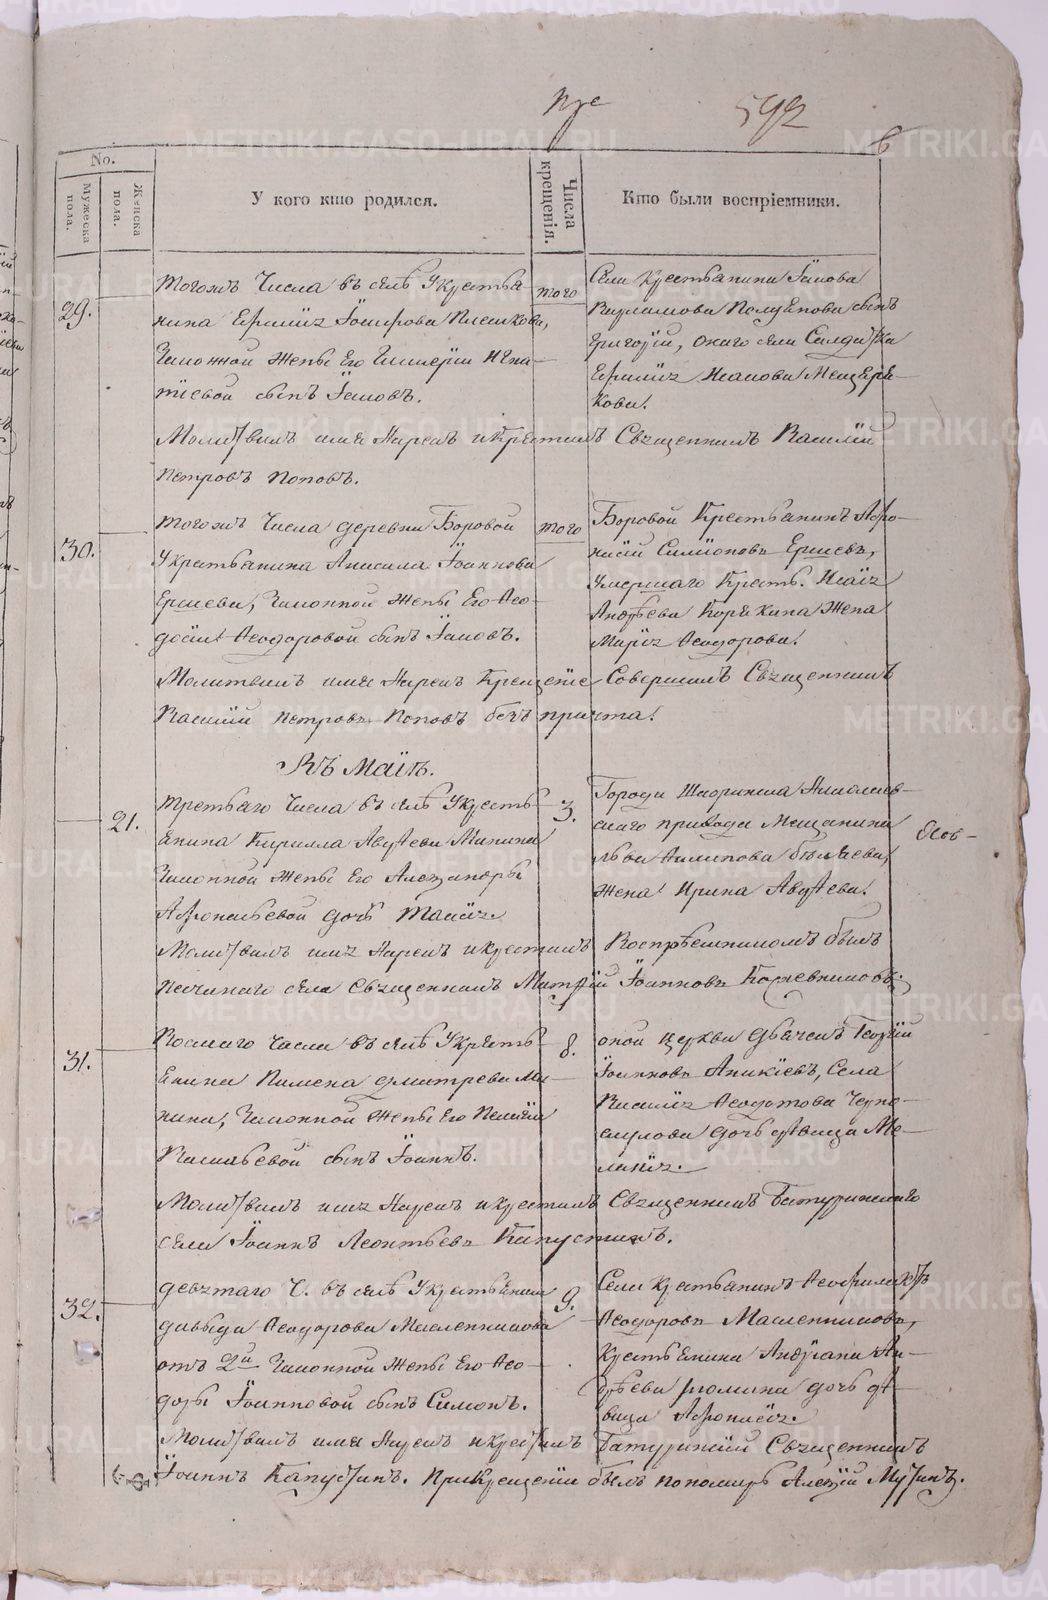 592
6
No.
Мужеска пола.
Женска пола.
У кого кто родился.
Числа крещенія.
Кто были воспріемники.
29.
тогожъ Числа въ селѣ Укрестья-
нина Ефимія Іосифова
Законной жены Его Гликеріи Игна-
тіевой сынъ Іаковъ.
того
Села Крестьянина Іакова
сынъ
Григорій, онаго села Солдатка
Ефимія Исакова Мещеря-
кова.
Молитвилъ имя Нарекъ икрестилъ Священникъ Василій
Петровъ Поповъ.
30.
тогожъ Числа деревни Боровой
Укрестьянина Анисима Іоаннова
Ершева, Законной жены Его Ѳео-
досіи Ѳеодоровой сынъ Іаковъ.
того
Боровой Крестьянинъ Афо-
насій Симіоновъ Ершевъ,
Умершаго Кресть. Исаія
Андрѣева Корякина жена
Марія Ѳеодорова.
Молитвилъ имя Нарекъ Крещеніе Совершилъ Священникъ
Василій Петровъ Поповъ безъ причта.
Въ Маіѣ.
21.
третьаго Числа въ селѣ Укресть-
янина Кирилла Авдѣева Минина
Законной жены Его Александры
Афонасьевой дочь Таисія.
3.
Города Шадринска
скаго прихода Мещанина
Льва Беляева,
жена Ирина Авдѣева.
Молитвилъ имя Нарекъ икрестилъ Воспрѣемникомъ былъ
села Священникъ Іоанновъ Кожевниковъ.
31.
Восмаго Числа въ селѣ Укресть-
янина Пимена Дмитрева Ми-
нина, Законной жены Его Пелагіи
Васильевой сынъ Іоаннъ.
8.
оной церкви дьячекъ Георгій
Іоанновъ Аникіевъ, Села
Василія Ѳеодотова Черно-
скулова дочь дѣвица Ме-
ланія.
Молитвилъ имя Нарекъ икрестилъ Священникъ Батуринскаго
села Іоаннъ Леонтьевъ Капустинъ.
32.
девятаго Ч. въ селѣ Укрестьянина
Давыда Ѳеодорова Масленникова
отъ 2й Законной жены Его Ѳео-
доры Іоанновой сынъ Симонъ.
9.
Села крестьянинъ Ѳеофилактъ
Ѳеодоровъ Масленниковъ,
Крестьянина Ан-
дрѣева дочь дѣ-
вица Афонасія.
Молитвилъ имя Нарекъ икрестилъ Батуринскій Священникъ
Іоаннъ Капустинъ. При Крещеніи былъ пономарь Алексѣй Мутинъ.
METRIKI.GASO-URAL.RU